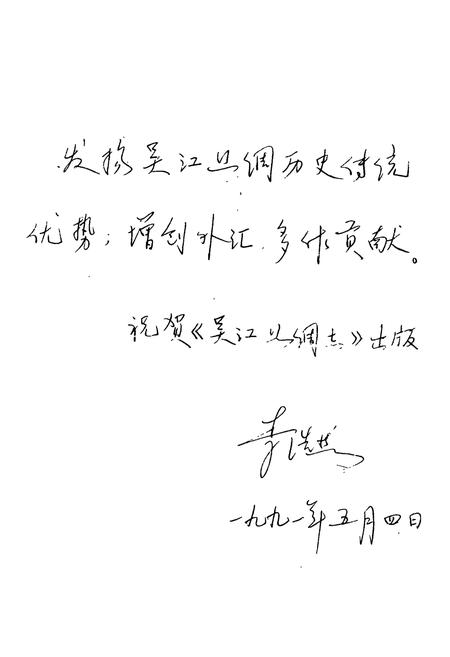 发扬吴江丝绸历史传统
优势，增创外汇，多作贡献。
祝贺《吴江丝绸志》出版
一九九一年五月四日